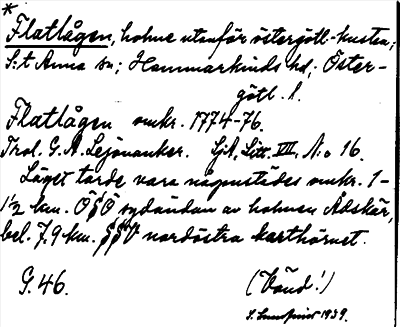 *
Flatlågen, holme utanför östergötl-kusten;
S:t Anna sn; Hammarkinds hd; Öster-
götl. l.
Flatlågen omkr. 1774-76.
Trol. G. A. Lejonanker. Sjk, Litt. VII, N:o 16.
Läget torde vara någonstädes omkr. 1-
1½ km. ÖSÖ sydändan av holmen Ådskär,
bel. 7,9 km. SSV nordöstra karthörnet.
G. 46. (Vänd!)
1939.